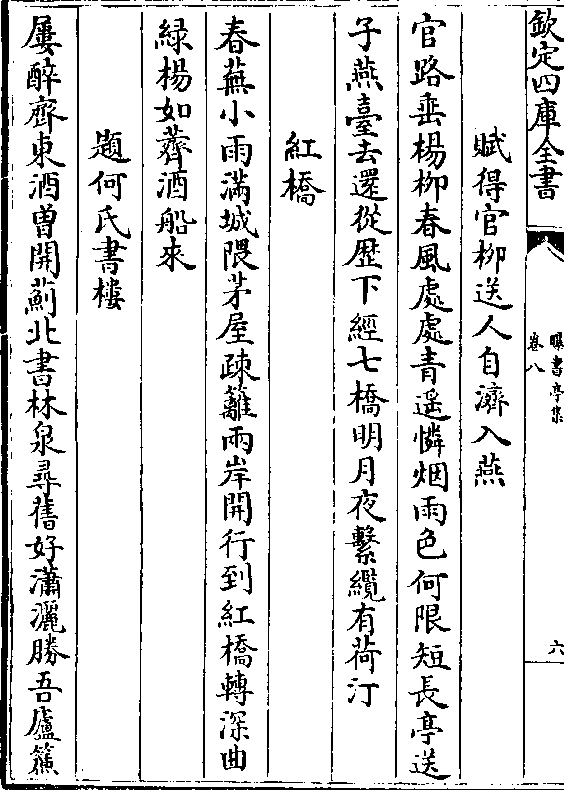 欽定四庫全書
曝書亭集
卷八
六
賦得官柳送人自濟入燕
官路垂楊柳春風處處青遥憐烟雨色何限短長亭送
子燕臺去還從歴下經七橋明月夜繫纜有荷汀
紅橋
春蕪小雨滿城隈茅屋疎籬兩岸開行到紅橋轉深曲
緑楊如薺酒船來
題何氏書樓
屢醉齊東酒曽開薊北書林泉尋舊好瀟灑勝吾廬簾